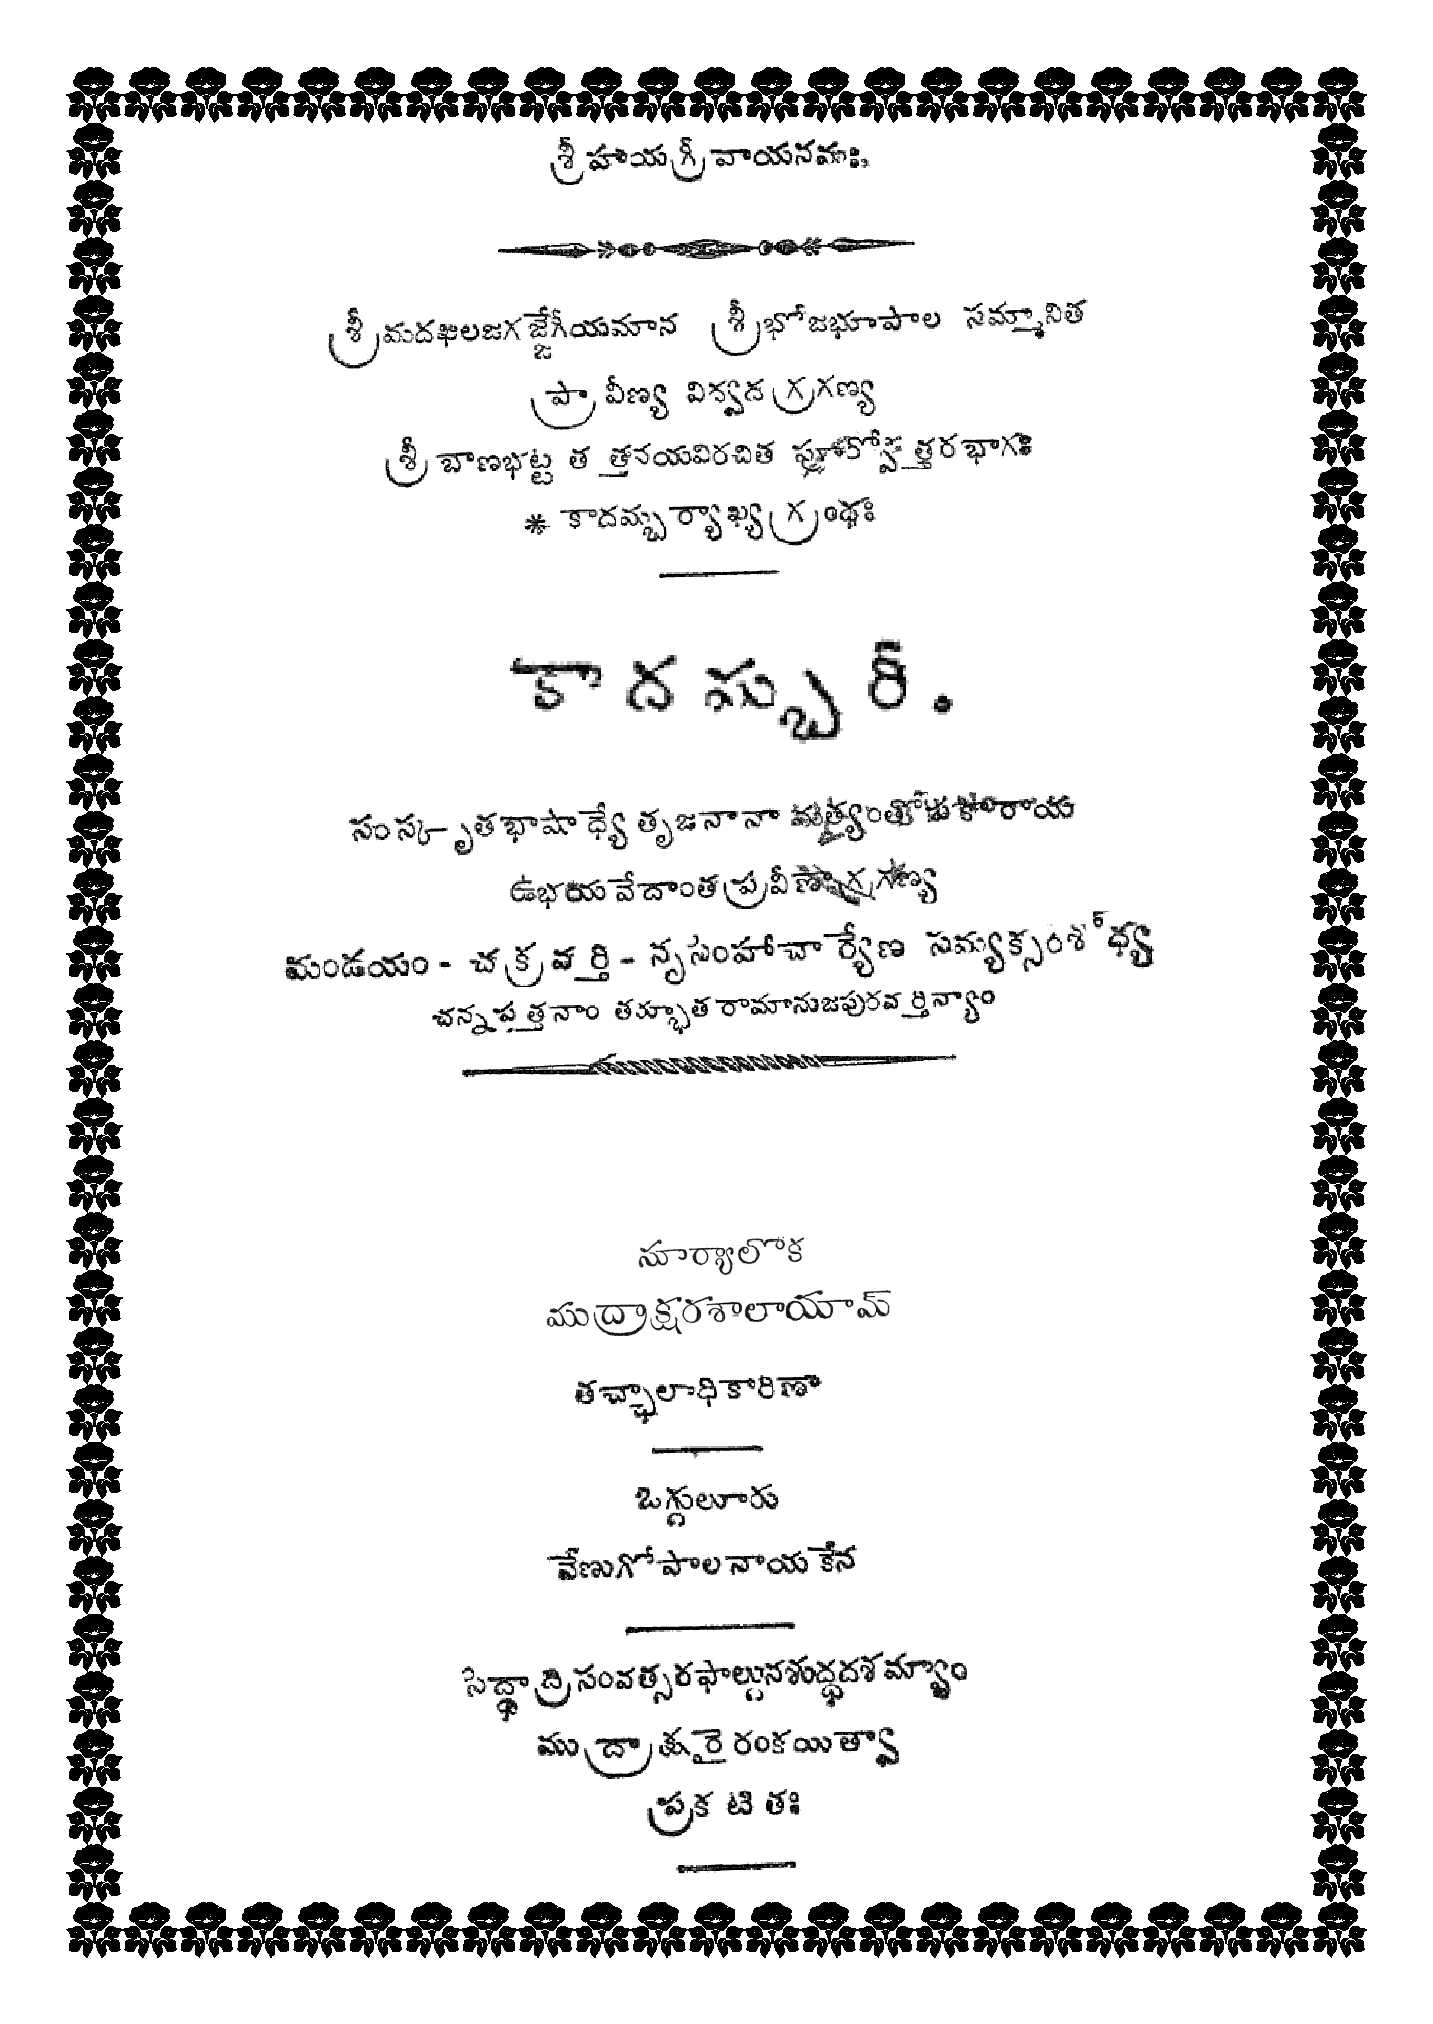 శ్రీహయగ్రీవాయనమః.
శ్రీమదఖిలజగజ్జేగీయమాన శ్రీభోజభూపాల సమ్మానిత
ప్రావీణ్య విద్వదగ్రగణ్య
శ్రీబాణభట్ట తత్తనయవిరచిత పూర్వోత్తరభాగః
* కాదమ్బర్యాఖ్యగ్రంథః
కాదమ్బరీ.
సంస్కృతభాషాధ్యేతృజనానా మత్యంతోపకారాయ
ఉభయవేదాంతప్రవీణ్యాగ్రగణ్య
మండయం - చక్రవర్తి - నృసింహాచార్యేణ సమ్యక్సంశోధ్య
చన్నపత్తనాం తర్భూతరామానుజపురవర్తిన్యాం
సూర్యాలోక
ముద్రాక్షరశాలాయామ్
తచ్ఛాలాధికారిణా
ఒగ్గులూరు
వేణుగోపాలనాయకేన
సిద్ధాద్రిసంవత్సరఫాల్గునశుద్ధదశమ్యాం
ముద్రాక్షరైరంకయిత్వా
ప్రకటితః